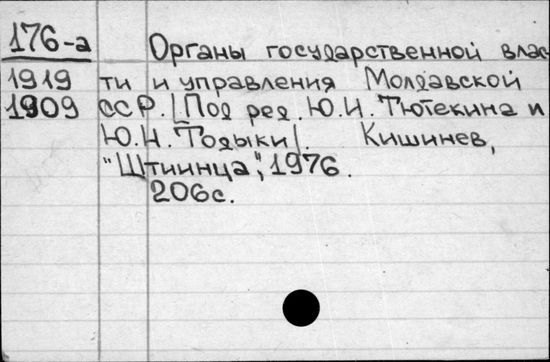 176-а Органы государственной влас-
1919 ти и управления Молдавской
1909 ССР. |Под ред. Ю.И. Тютекина и
Ю.Н. Тодыки|. Кишинев,
"Штиинца", 1976.
206с.